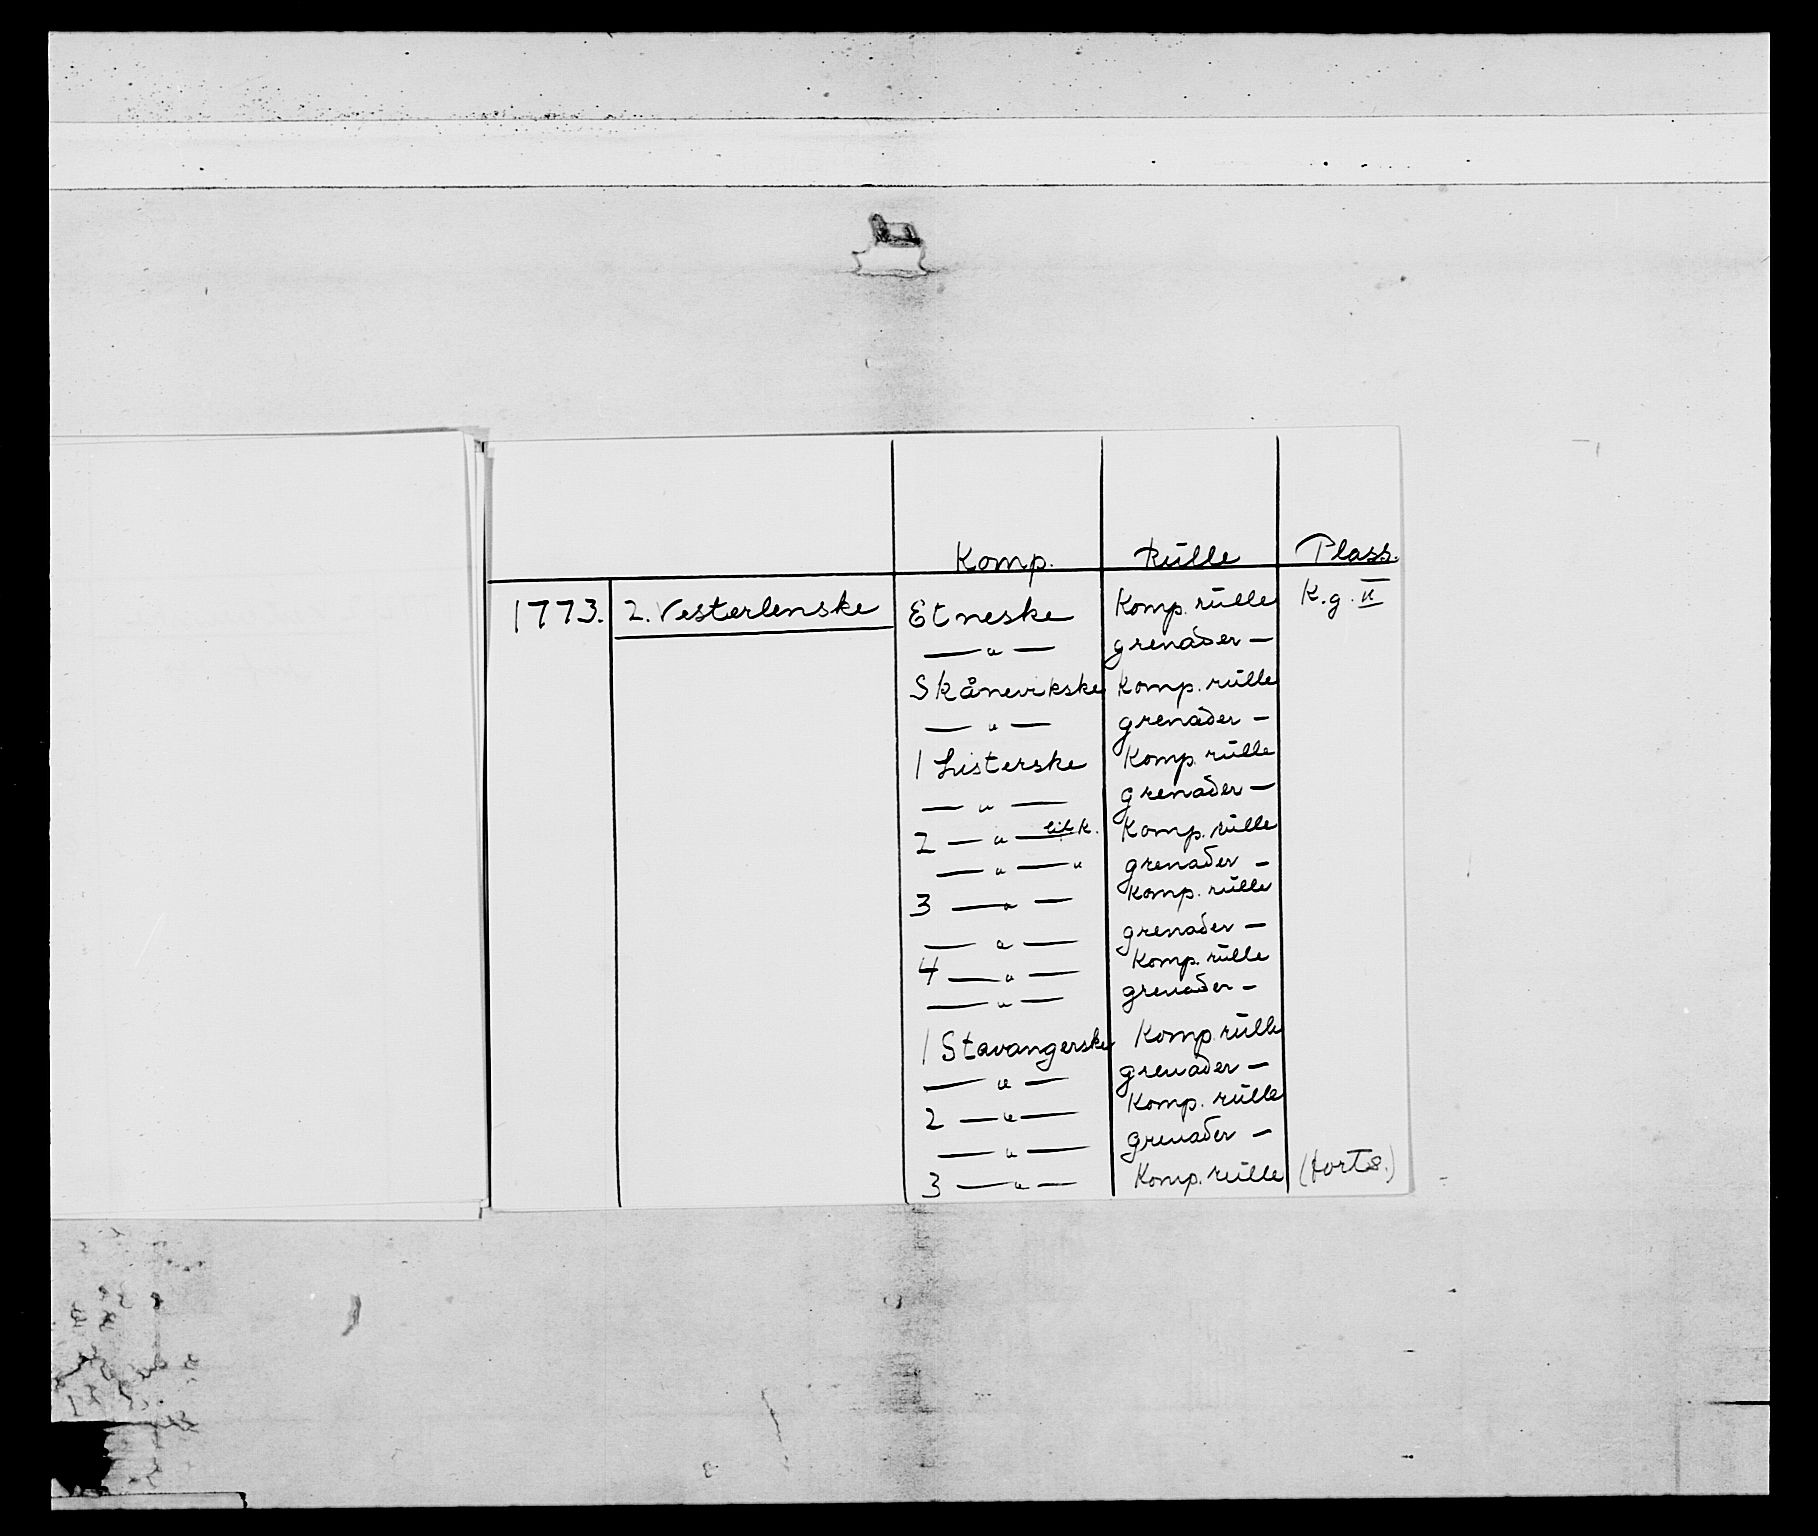 Komp. Rulle Plass.
1773. 2. Vesterlenske Etneske Komp. rulle K.g. II
— " — grenader —
Skånevikske Komp. rulle
— " — grenader —
1 Listerske Komp. rulle
— " — grenader —
2 — " — liv k. Komp. rulle
— " — " grenader —
3 — " — Komp. rulle
— " — grenader —
4 — " — Komp. rulle
— " — grenader —
1 Stavangerske Komp. rulle
— " — grenader —
2 — " — Komp. rulle
— " — grenader —
3 — " — Komp. rulle (forts.)